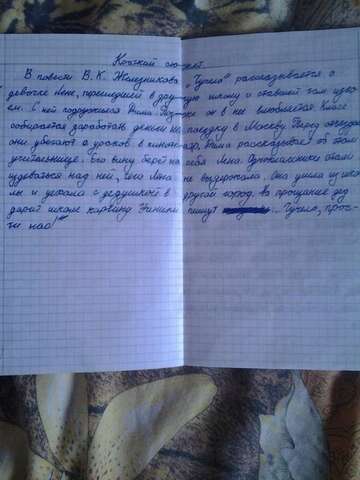 Краткий сюжет.
В повести В.К. Железникова "Чучело" рассказывается о
девочке Лене, перешедшей в другую школу и ставшей там изго-
ем. С ней подружился Дима. Позже он в нее влюбляется. Класс
собирается заработать деньги на поездку в Москву. Перед отъездом
они убегают с уроков в кинотеатр. Дима рассказывает об этом
учительнице. Его вину берет на себя Лена. Одноклассники стали
издеваться над ней, но Лена не выдержала. Она ушла из шко-
лы и уехала с дедушкой в другой город, на прощание дед
дарит школе картину. Ученики пишут ... Чучело, прос-
ти нас!